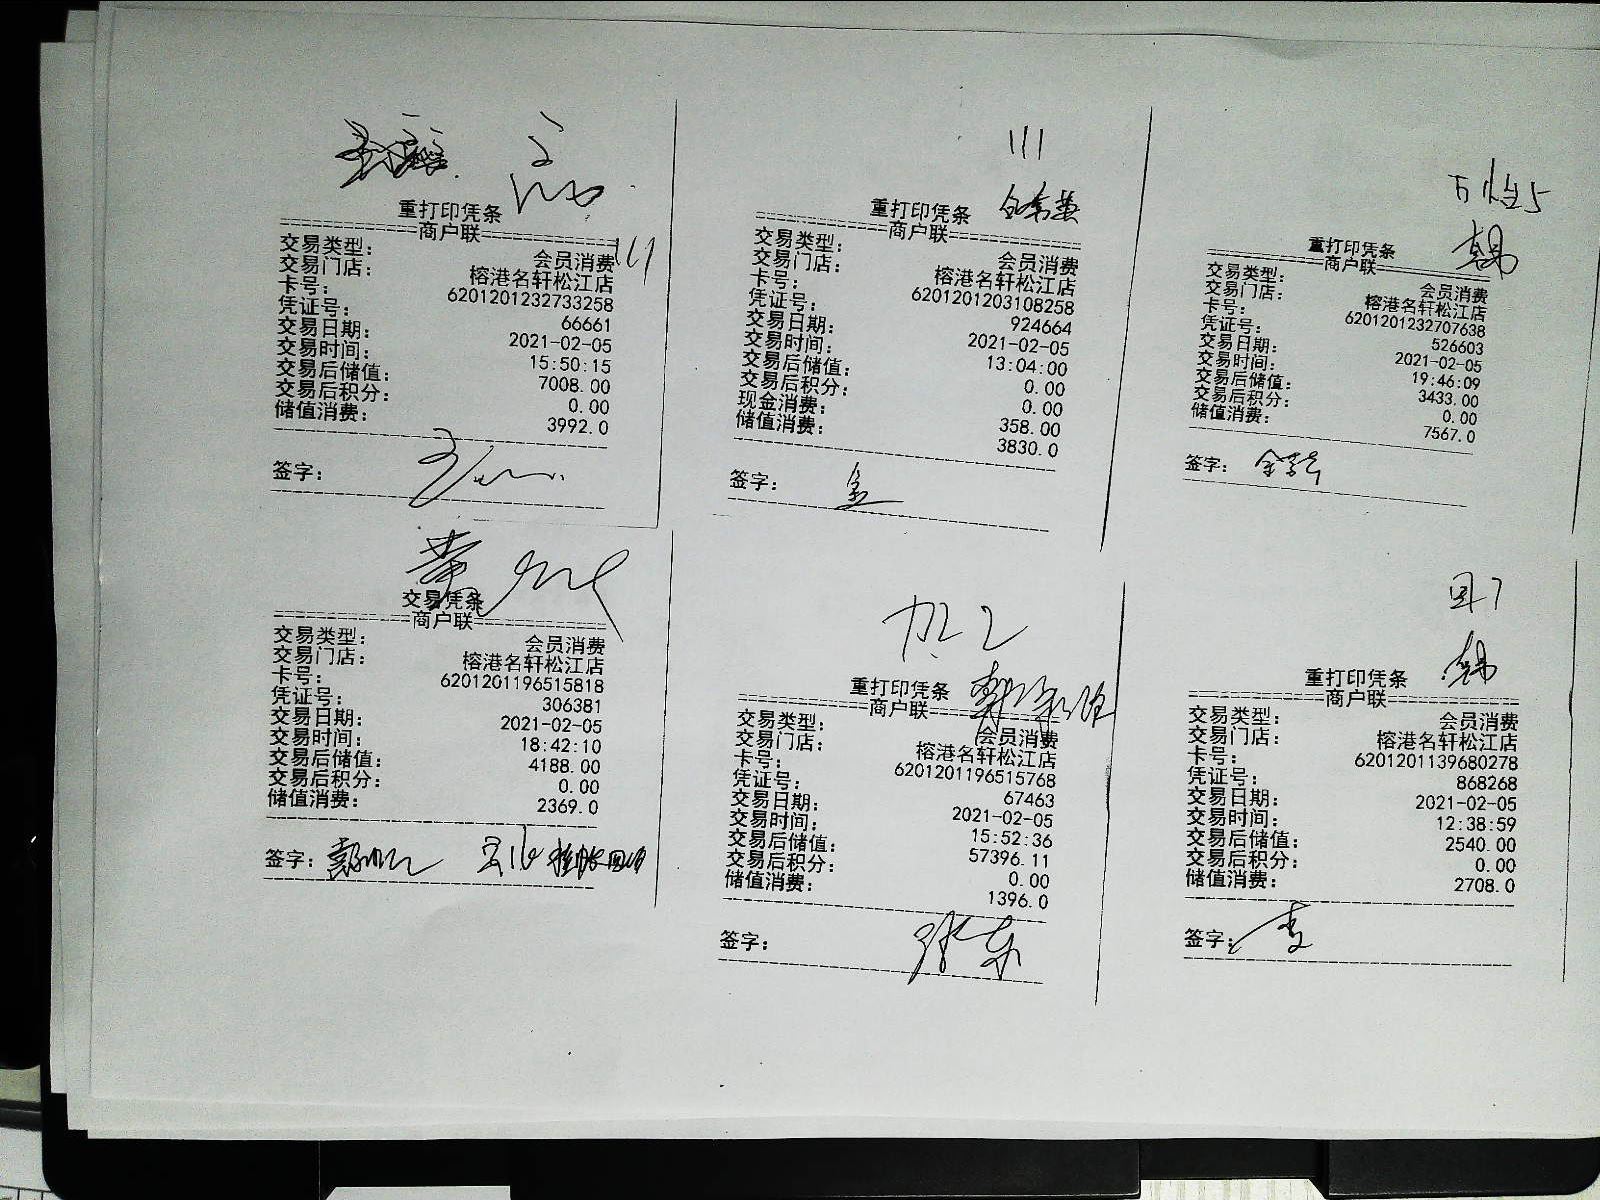 重打印凭条
商户联
交易类型： 会员消费
交易门店： 榕港名轩松江店
卡号： 6201201232733258
凭证号： 66661
交易日期： 2021-02-05
交易时间： 15:50:15
交易后储值： 7008.00
交易后积分： 0.00
储值消费： 3992.0
签字：
111
重打印凭条
商户联
交易类型： 会员消费
交易门店： 榕港名轩松江店
卡号： 6201201203108258
凭证号： 924664
交易日期： 2021-02-05
交易时间： 13:04:00
交易后储值： 0.00
交易后积分： 0.00
现金消费： 358.00
储值消费： 3830.0
签字：
重打印凭条
商户联
交易类型： 会员消费
交易门店： 榕港名轩松江店
卡号： 6201201232707638
凭证号： 526603
交易日期： 2021-02-05
交易时间： 19:46:09
交易后储值： 3433.00
交易后积分： 0.00
储值消费： 7567.0
签字：
交易凭条
商户联
交易类型： 会员消费
交易门店： 榕港名轩松江店
卡号： 6201201196515818
凭证号： 306381
交易日期： 2021-02-05
交易时间： 18:42:10
交易后储值： 4188.00
交易后积分： 0.00
储值消费： 2369.0
签字：
重打印凭条
商户联
交易类型： 会员消费
交易门店： 榕港名轩松江店
卡号： 6201201196515768
凭证号： 67463
交易日期： 2021-02-05
交易时间： 15:52:36
交易后储值： 57396.11
交易后积分： 0.00
储值消费： 1396.0
签字：
重打印凭条
商户联
交易类型： 会员消费
交易门店： 榕港名轩松江店
卡号： 6201201139680278
凭证号： 868268
交易日期： 2021-02-05
交易时间： 12:38:59
交易后储值： 2540.00
交易后积分： 0.00
储值消费： 2708.0
签字： 李